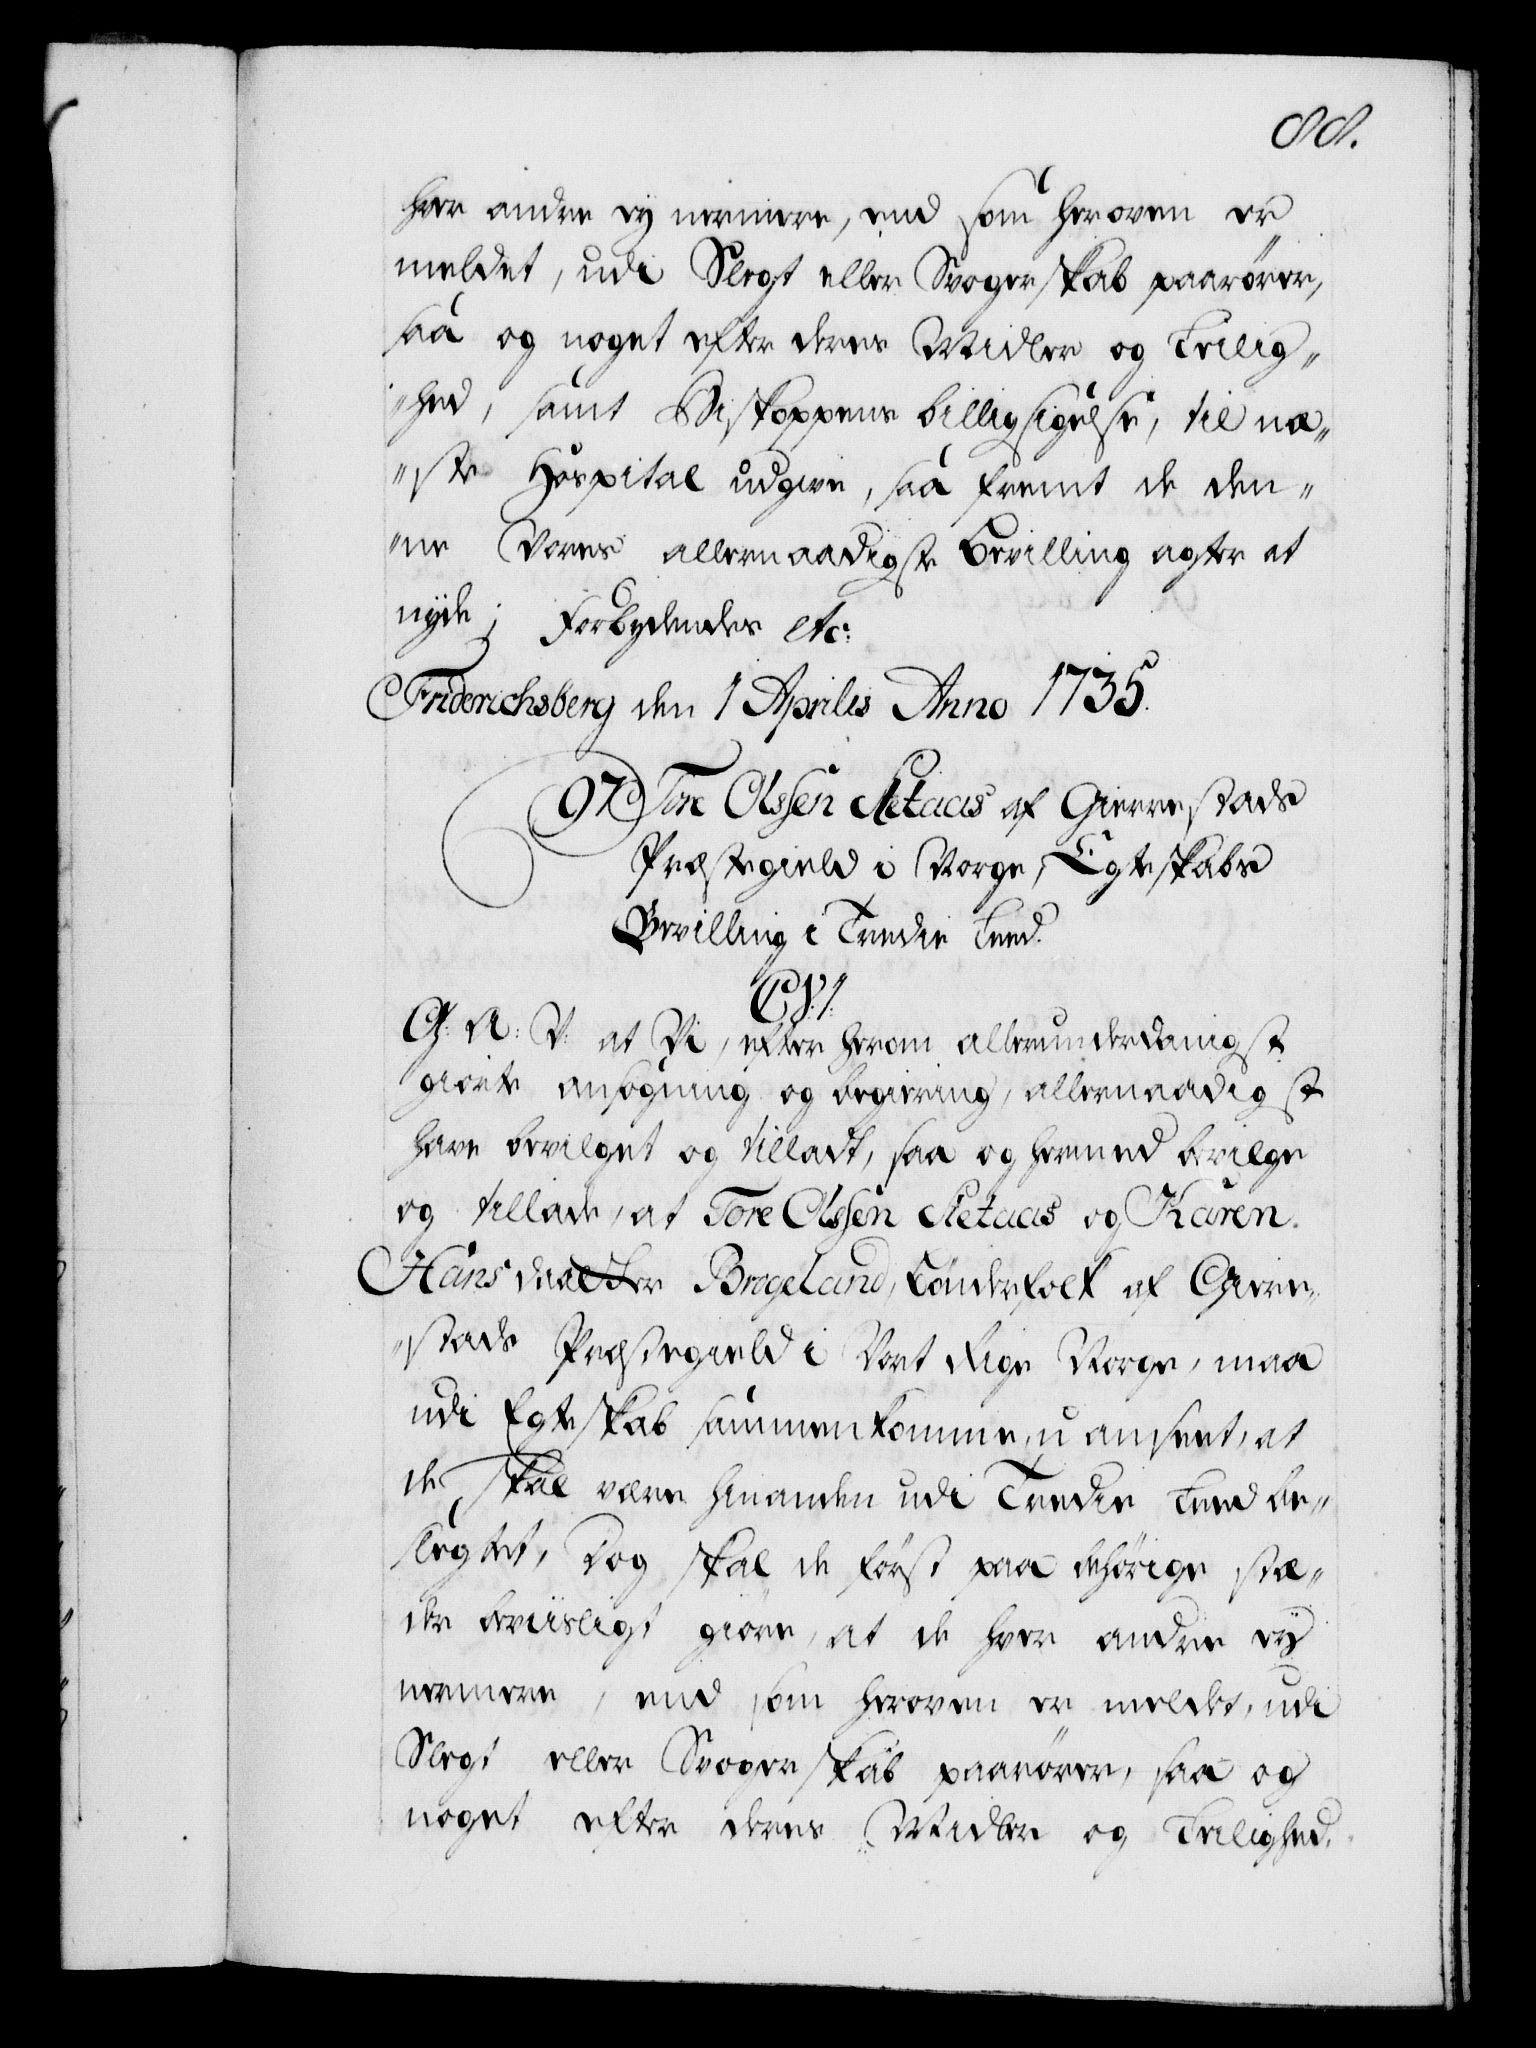 88.
hver andre ey nermere, end som her oven er
meldet, udi Slegt eller Svogerskab paarører,
saa og noget efter deres Midler og Leilig„
„hed, samt Biskoppens billigsigelse, til næ„
„ste Hospital udgive, saa fremt de den„
„ne Vores allernaadigste Bevilling agter at
nyde; Forbydendes etc:
Friderichsberg den 1 Aprilis Anno 1735.
97 Tore Olssen Aetaas af Gierrestads
Præstegield i Norge, Egteskabs
Bevilling i Tredie Leed.
C. VI.
G: A: V: at Vi, efter herom allerunderdanigst
giorte ansøgning og begiering, allernaadigst
have bevilget og tilladt, saa og hermed bevilge
og tillade, at Tore Olssen Aetaas og Karen
Hans daatter Brogeland, bønderfolk af Gierre„
„stads Præstegield i Vort Rige Norge, maa
udi Egteskab sammenkomme, uanseet, at
de skal være hinanden udi Tredie Leed be„
slegtet, Dog skal de først paa behörige stæ„
der beviisligt giøre, at de hver andre ey
nermere, end som heroven er meldet, udi
Slegt eller Svogerskab paarører, saa og
noget efter deres Midler og Leilighed.